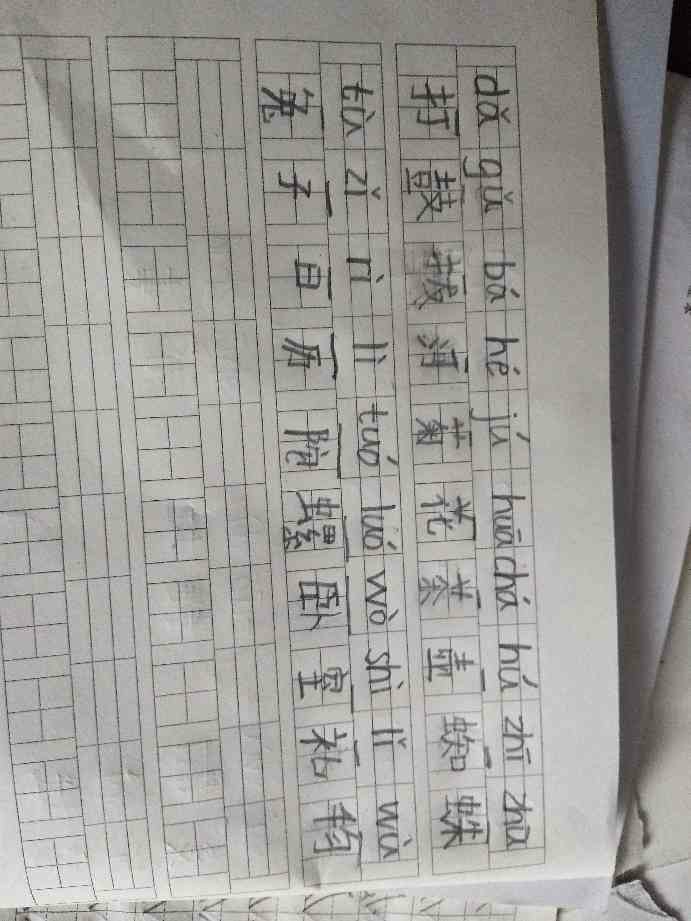 dǎ gǔ bá hé jú huā chá hú zhī zhū
打鼓拔河菊花茶壶蜘蛛
tù zǐ rì lì tuó luó wò shì lǐ wù
兔子日历陀螺卧室礼物